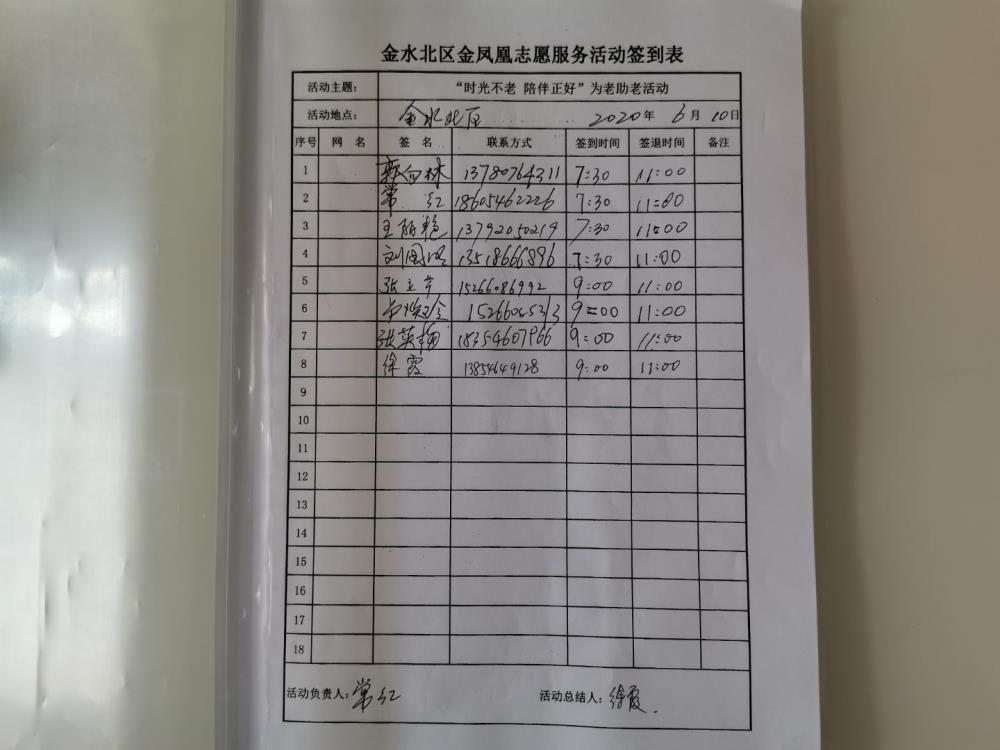 金水北区金凤凰志愿服务活动签到表
活动主题： “时光不老 陪伴正好”为老助老活动
活动地点： 金水北区 2020年 6月 10日
序号 网 名 签 名 联系方式 签到时间 签退时间 备注
1 13780764311 7:30 11:00
2 常 红 18605462226 7:30 11:00
3 王丽艳 13792050219 7:30 11:00
4 刘国 13518666896 7:30 11:00
5 张立芹 15266086992 9:00 11:00
6 9:00 11:00
7 张英梅 18354607966 9:00 11:00
8 徐霞 13854649128 9:00 11:00
9
10
11
12
13
14
15
16
17
18
活动负责人：常红 活动总结人：徐霞.